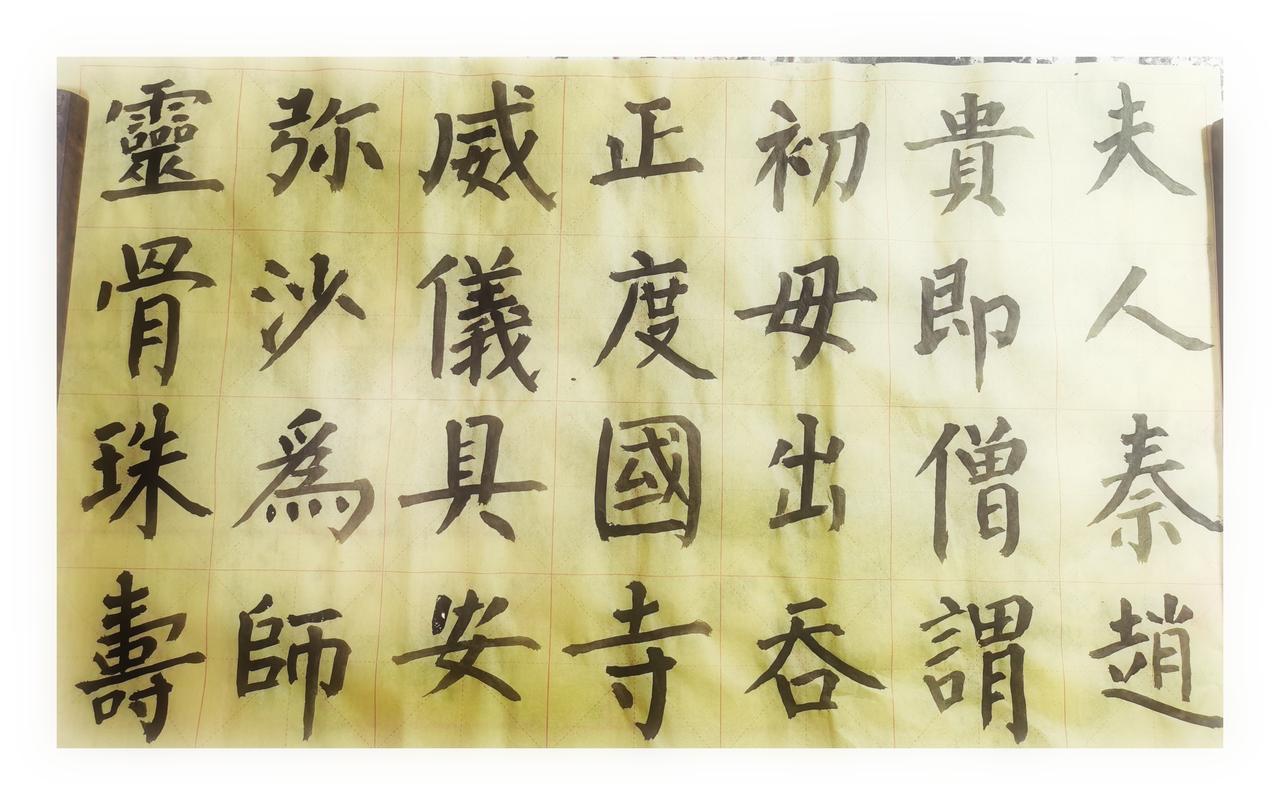 夫人秦趙
貴即僧謂
初母出吞
正度國寺
威儀具安
弥沙為師
靈骨珠壽